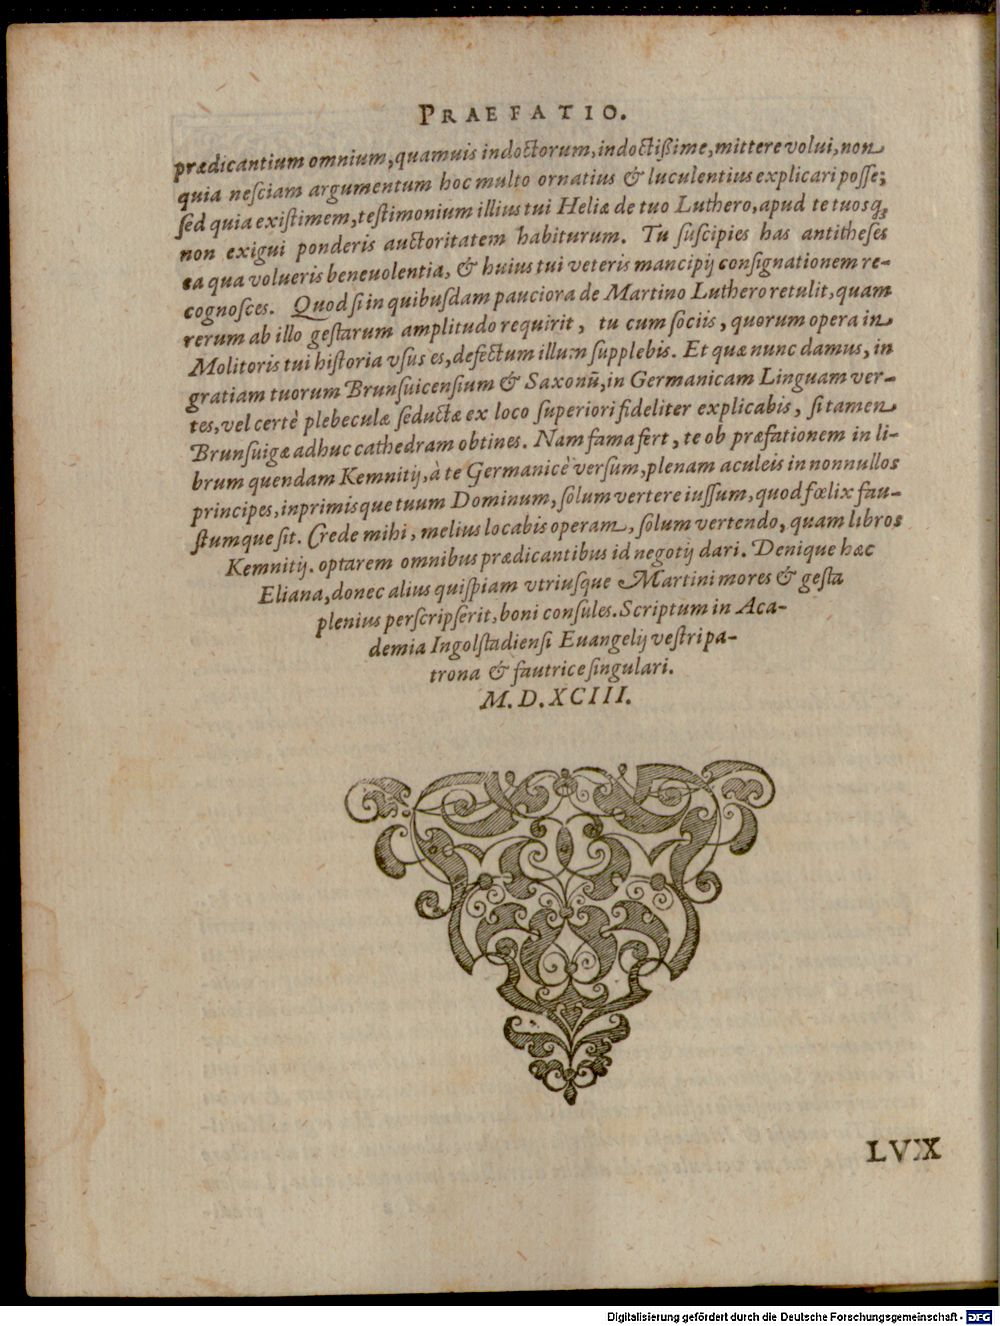 PRAEFATIO.
prædicantium omnium, quamuis indoctorum, indoctißime, mittere volui, non
quia neſciam argumentum hoc multo ornatius & luculentius explicari poſſe;
ſed quia exiſtimem, teſtimonium illius tui Heliæ de tuo Luthero, apud te tuosq́;
non exigui ponderis auctoritatem habiturum. Tu ſuſcipies has antitheſes
ea qua volueris beneuolentia, & huius tui veteris mancipij conſignationem re-
cognoſces. Quod ſi in quibuſdam pauciora de Martino Luthero retulit, quam
rerum ab illo geſtarum amplitudo requirit, tu cum ſociis, quorum opera in
Molitoris tui hiſtoria vſus es, defectum illum ſupplebis. Et quæ nunc damus, in
gratiam tuorum Brunſuicenſium & Saxonũ, in Germanicam Linguam ver-
tes, vel certè plebeculæ ſeductæ ex loco ſuperiori fideliter explicabis, ſi tamen
Brunſuigæ adhuc cathedram obtines. Nam fama fert, te ob præfationem in li-
brum quendam Kemnitij, à te Germanicè verſum, plenam aculeis in nonnullos
principes, inprimisque tuum Dominum, ſolum vertere iuſſum, quod fœlix fau-
ſtumque ſit. Crede mihi, melius locabis operam, ſolum vertendo, quam libros
Kemnitij. optarem omnibus prædicantibus id negotij dari. Denique hæc
Eliana, donec alius quiſpiam vtriuſque Martini mores & geſta
plenius perſcripſerit, boni conſules. Scriptum in Aca-
demia Ingolſtadienſi Euangelij veſtri pa-
trona & fautrice ſingulari.
M. D. XCIII.
LVX
Digitalisierung gefördert durch die Deutsche Forschungsgemeinschaft - DFG